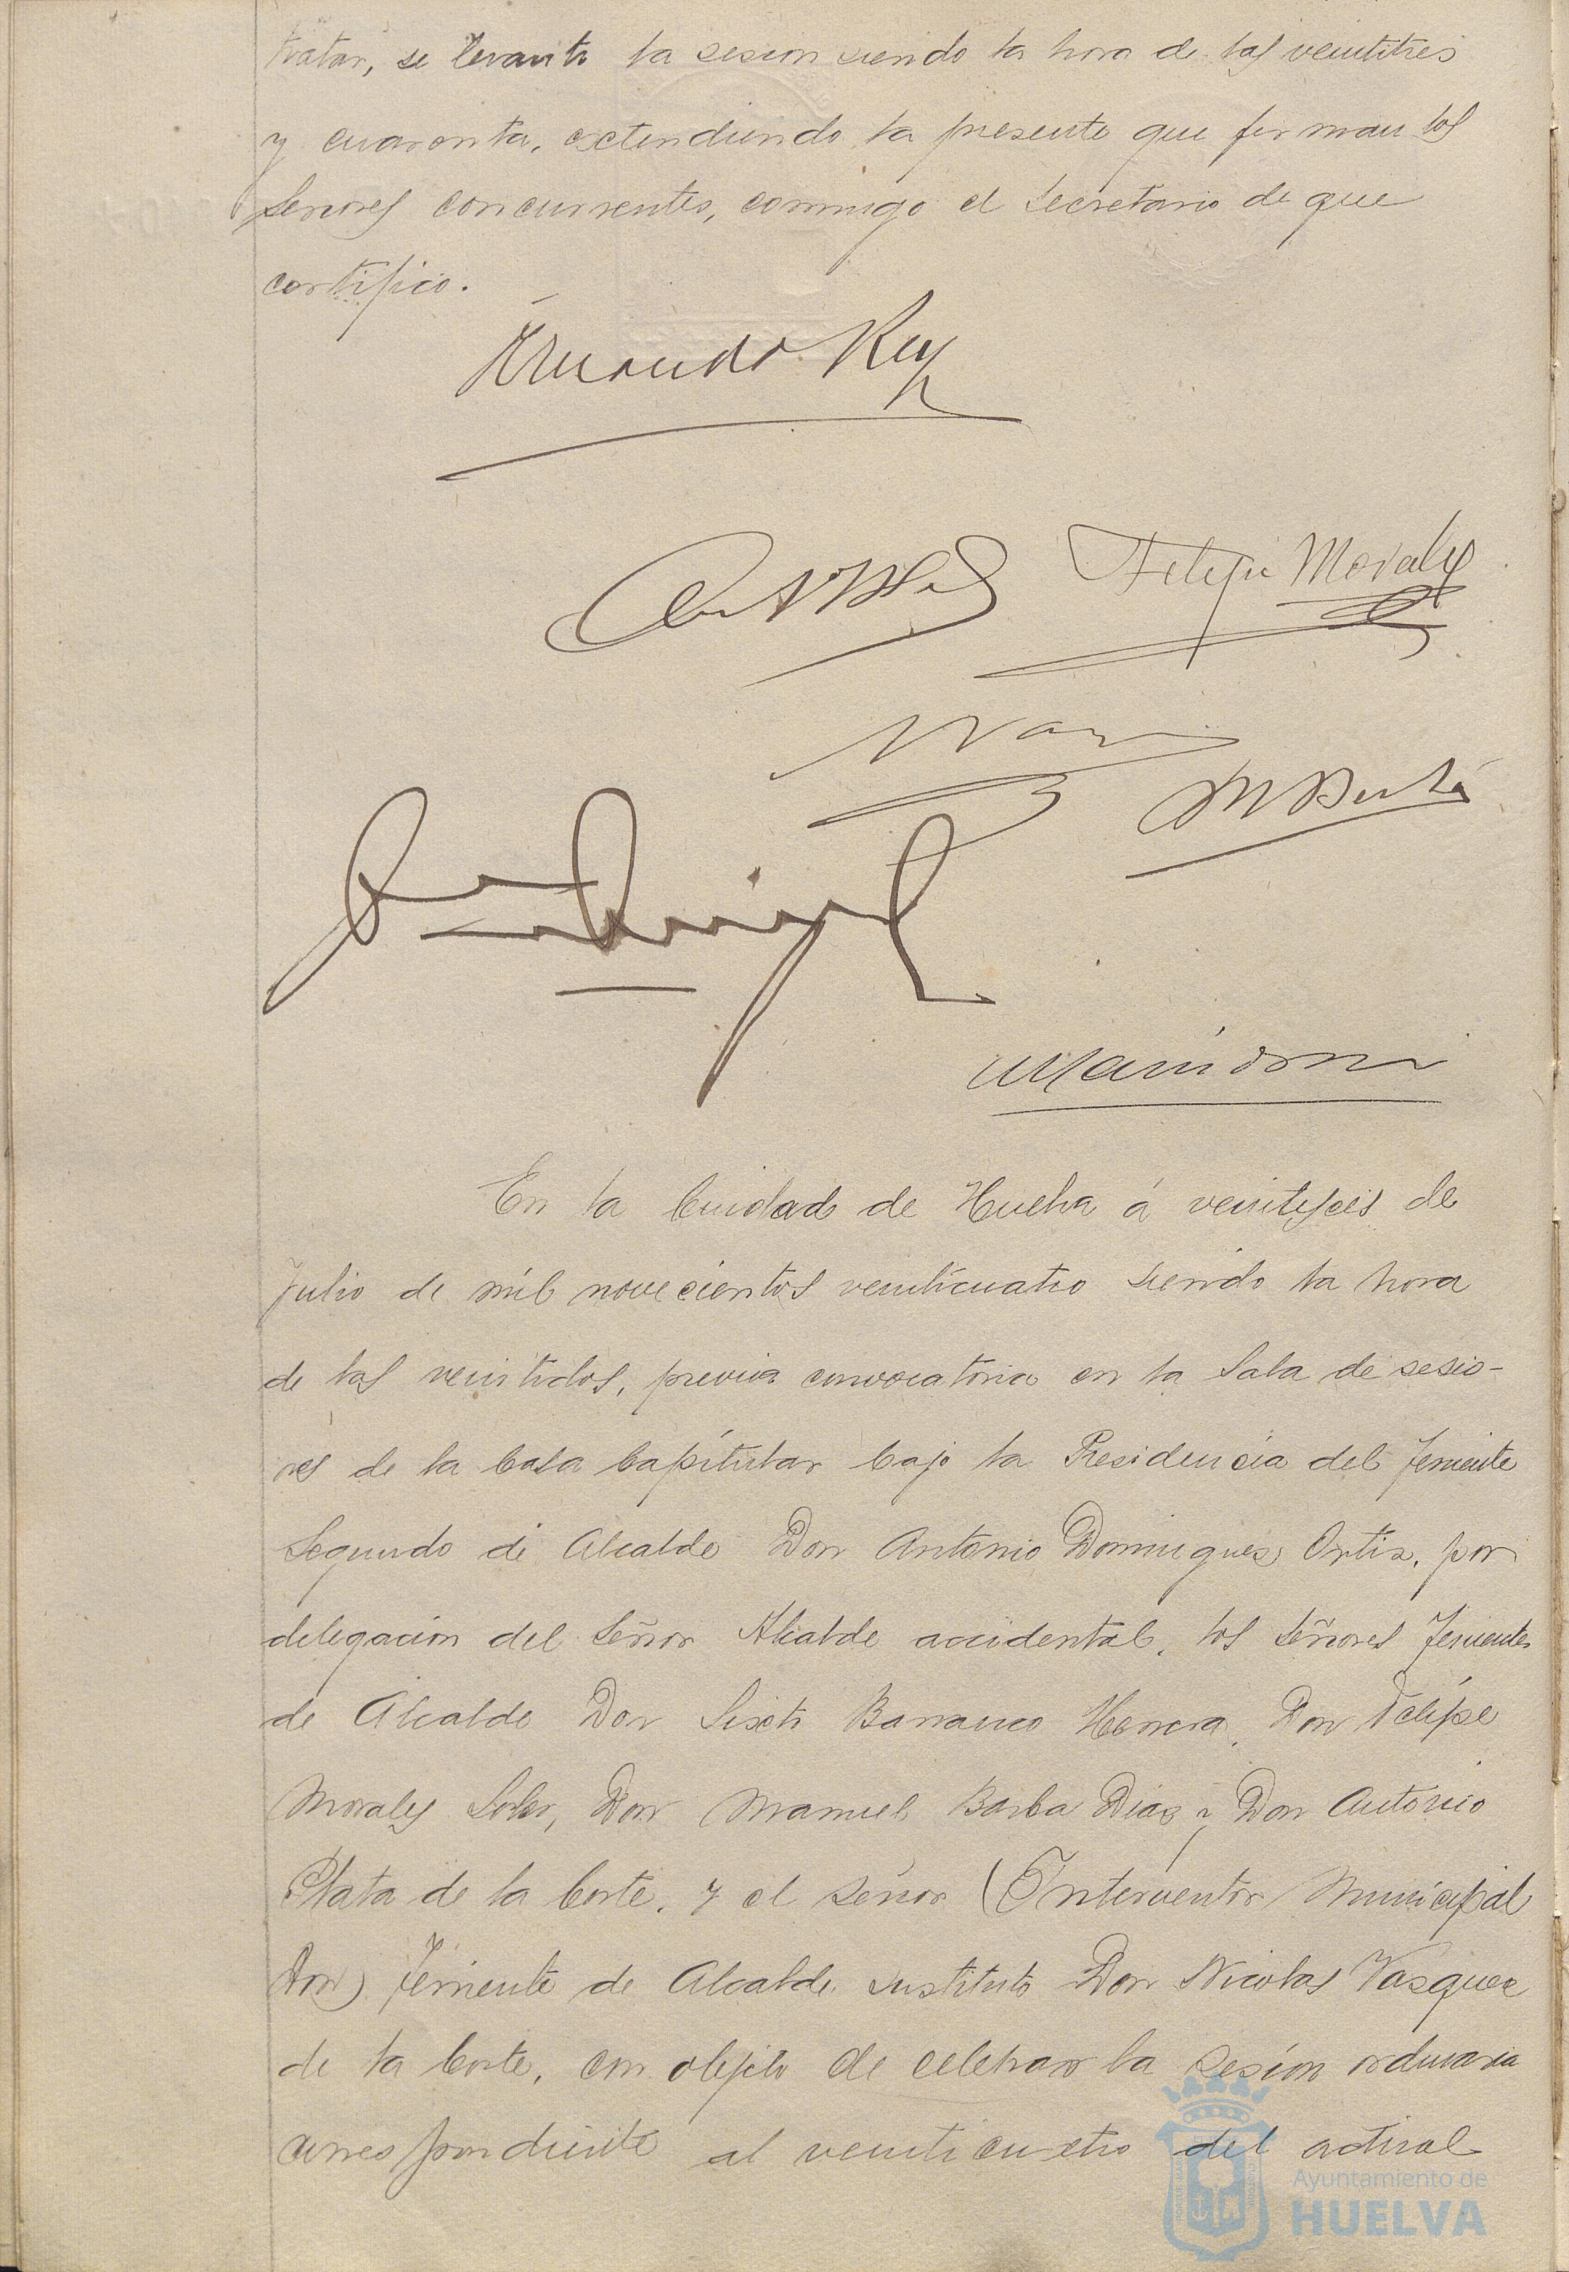 tratar, se levanto la sesion siendo la hora de las veintitres
y cuarenta, extendiendo la presente que firman los
señores concurrentes, conmigo el Secretario de que
certifico.
Fernando Rey
Felipe Morales
M Barba
En la Ciudad de Huelva á veintiseis de
Julio de mil novecientos veinticuatro siendo la hora
de las veintidos, previa convocatoria en la Sala de sesio-
nes de la Casa Capitular bajo la Presidencia del Teniente
Segundo de Alcalde Don Antonio Dominguez Ortiz, por
delegacion del Señor Alcalde accidental, los Señores Tenientes
de Alcalde Don Sixto Barranco Herrera, Don Felipe
Morales Soler, Don Manuel Barba Diaz y Don Antonio
Plata de la Corte, y el señor (Interventor Municipal
Don) Teniente de Alcalde sustituto Don Nicolas Vazquez
de la Corte, con objeto de celebrar la sesion ordinaria
correspondiente al veinticuatro del actual
Ayuntamiento de
HUELVA